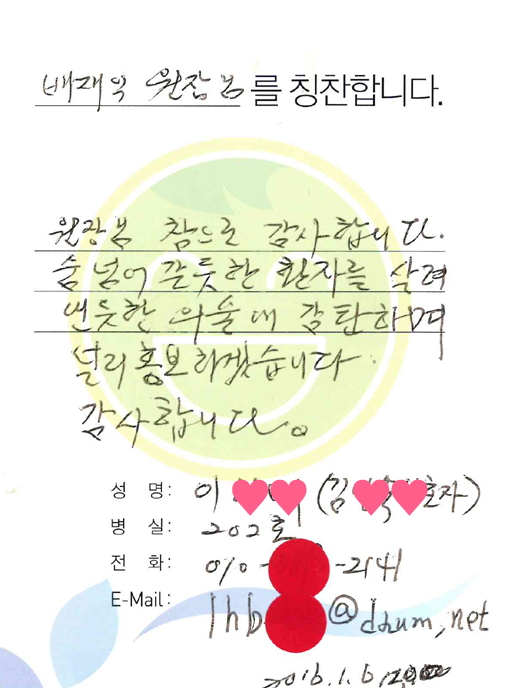 배재익 원장님 를 칭찬합니다.
원장님 참으로 감사합니다.
숨넘어 갈듯한 환자를 살려
번듯한 의술에 감탄하며
널리 홍보하겠습니다
감사합니다.
성 명: 이 (김 호자)
병 실: 202호
전 화: 010- -2141
E-Mail: lhb @daum,net
2016.1.6